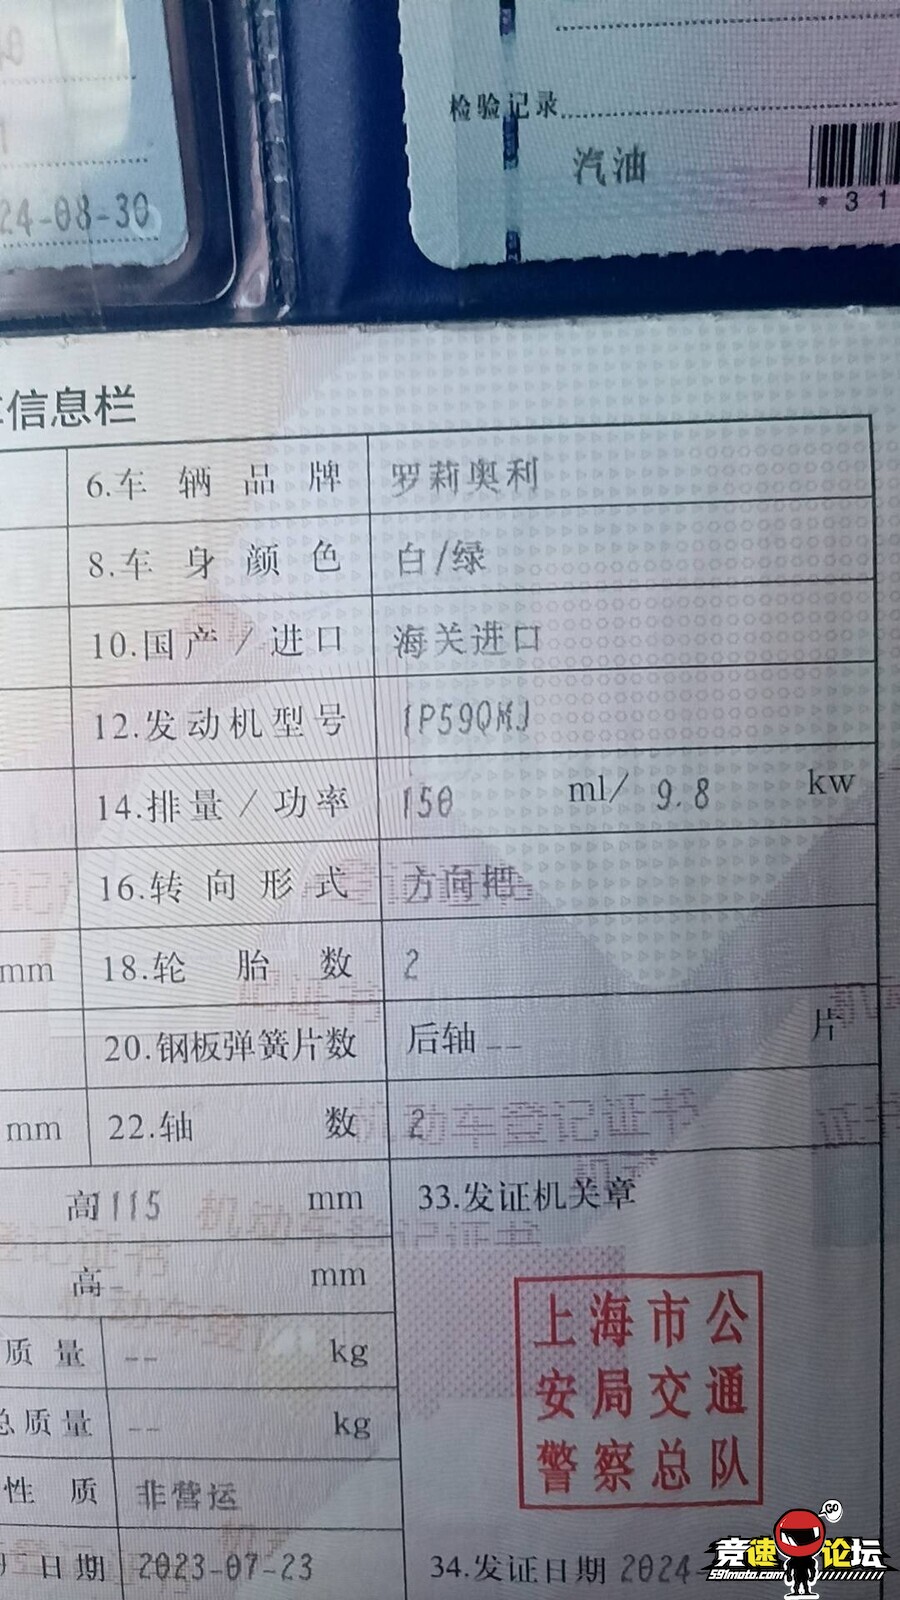 24-08-30
检验记录
汽油
*31
信息栏
6.车辆品牌 罗莉奥利
8.车身颜色 白/绿
10.国产/进口 海关进口
12.发动机型号 1P59QMJ
14.排量/功率 150 ml/ 9.8 kw
16.转向形式 方向把
mm 18.轮胎数 2
20.钢板弹簧片数 后轴 -- 片
mm 22.轴数 2
高 115 mm 33.发证机关章
高 mm
质量 -- kg
总质量 -- kg
性质 非营运
日期 2023-07-23 34.发证日期 2024-
上海市公
安局交通
警察总队
GO
竞速论坛
591moto.com